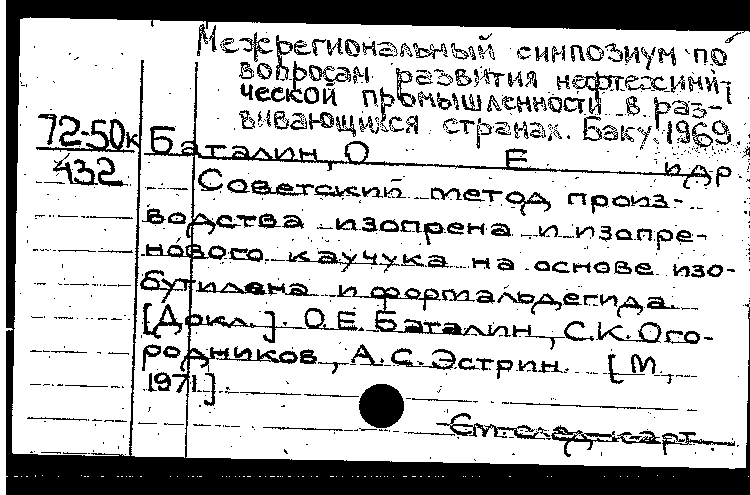 Межрегиональный симпозиум по
вопросам развития нефтехими-
ческой промышленности в раз-
вивающихся странах. Баку. 1969.
72-50к
432
Баталин, О Е и др
Советский метод произ-
водства изопрена и изопре-
нового каучука на основе изо-
бутилена и формальдегида
[Докл.]. О.Е. Баталин, С.К. Ого-
родников, А.С. Эстрин. [М,
1971].
См. след карт.